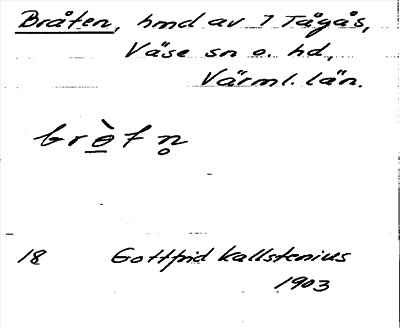 Bråten, hmd av 7 Tägås,
Väse sn o. hd,
Värml. län.
brò̲tn̥
18 Gottfrid Kallstenius
1903